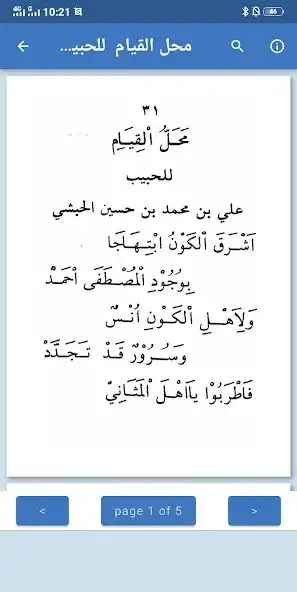 10:21
66
محل القيام للحبيـ...
٣١
مَحَلُّ الْقِيَامِ
للحبيب
علي بن محمد بن حسين الحبشي
اَشْرَقَ الْكَوْنُ ابْتِهَاجَا
بِوُجُوْدِ الْمُصْطَفَى اَحْمَدْ
وَلِاَهْلِ الْكَوْنِ اُنْسٌ
وَسُرُوْرٌ قَدْ تَجَدَّدْ
فَاطْرَبُوْا يَااَهْلَ الْمَثَانِيْ
<
page 1 of 5
>